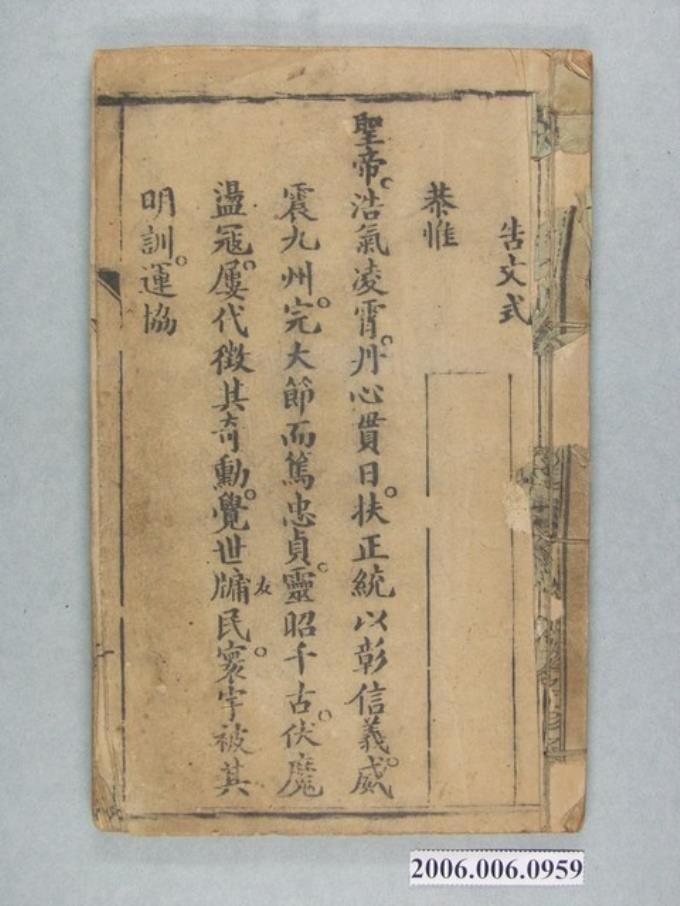 告文式
恭惟
聖帝。浩氣凌霄。丹心貫日。扶正統以彰信義。威
震九州。完大節而篤忠貞。靈昭千古。伏魔
盪冦。屢代徵其奇勳。覺世牗民。寰宇被其
友
明訓。運協
2006.006.0959